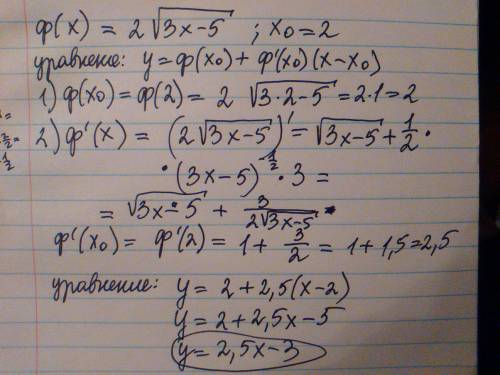 ф(x) = 2√(3x-5) ; x₀=2
уравнение: y=ф(x₀)+ ф'(x₀)(x-x₀)
1) ф(x₀)=ф(2)= 2 √(3·2-5)=2·1=2
2) ф'(x) = (2√(3x-5))'=√(3x-5)+1/2·
·(3x-5)^(-1/2)·3 =
= √(3x-5) + 3/(2√(3x-5))
ф'(x₀)= ф'(2)= 1+ 3/2 = 1+1,5=2,5
уравнение: y= 2+2,5(x-2)
y= 2+2,5x-5
y= 2,5x-3